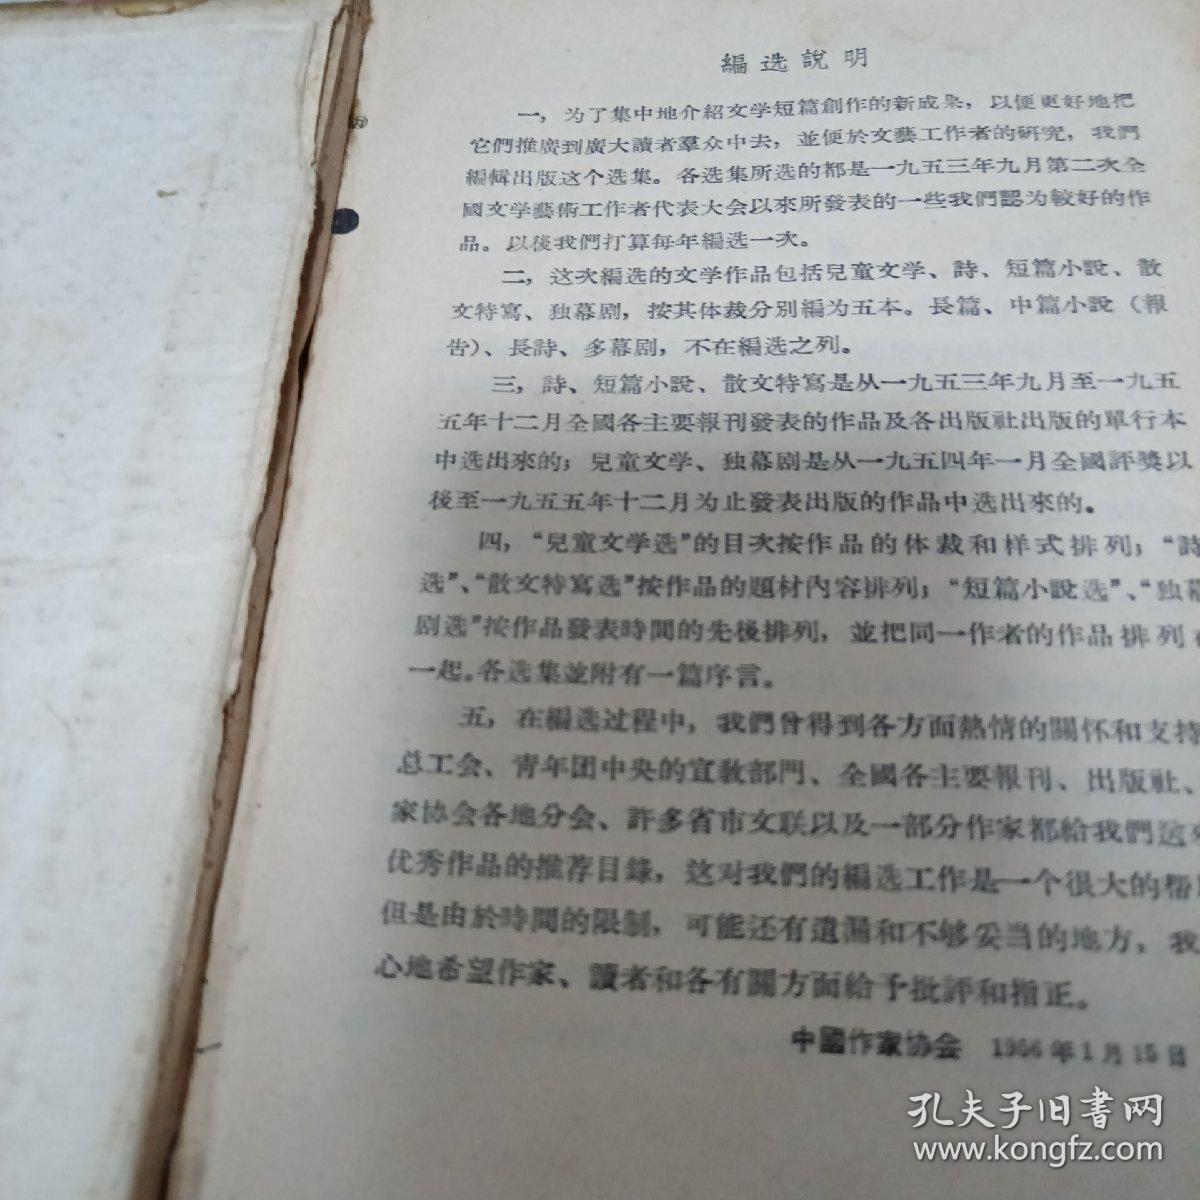 編选說明
一，为了集中地介紹文学短篇創作的新成果，以便更好地把
它們推廣到廣大讀者羣众中去，並便於文藝工作者的研究，我們
編輯出版这个选集。各选集所选的都是一九五三年九月第二次全
國文学藝術工作者代表大会以來所發表的一些我們認为較好的作
品。以後我們打算每年編选一次。
二，这次編选的文学作品包括兒童文学、詩、短篇小說、散
文特寫、独幕剧，按其体裁分別編为五本。長篇、中篇小說（報
告）、長詩、多幕剧，不在編选之列。
三，詩、短篇小說、散文特寫是从一九五三年九月至一九五
五年十二月全國各主要報刊發表的作品及各出版社出版的單行本
中选出來的；兒童文学、独幕剧是从一九五四年一月全國評獎以
後至一九五五年十二月为止發表出版的作品中选出來的。
四，“兒童文学选”的目次按作品的体裁和样式排列；“詩
选”、“散文特寫选”按作品的題材內容排列；“短篇小說选”、“独幕
剧选”按作品發表時間的先後排列，並把同一作者的作品排列
一起。各选集並附有一篇序言。
五，在編选过程中，我們曾得到各方面熱情的關怀和支持
总工会、青年团中央的宣敎部門、全國各主要報刊、出版社、
家协会各地分会、許多省市文联以及一部分作家都給我們这
优秀作品的推荐目錄，这对我們的編选工作是一个很大的帮
但是由於時間的限制，可能还有遺漏和不够妥当的地方，我
心地希望作家、讀者和各有關方面給予批評和指正。
中國作家协会 1956年1月15日
孔夫子旧書网
www.kongfz.com